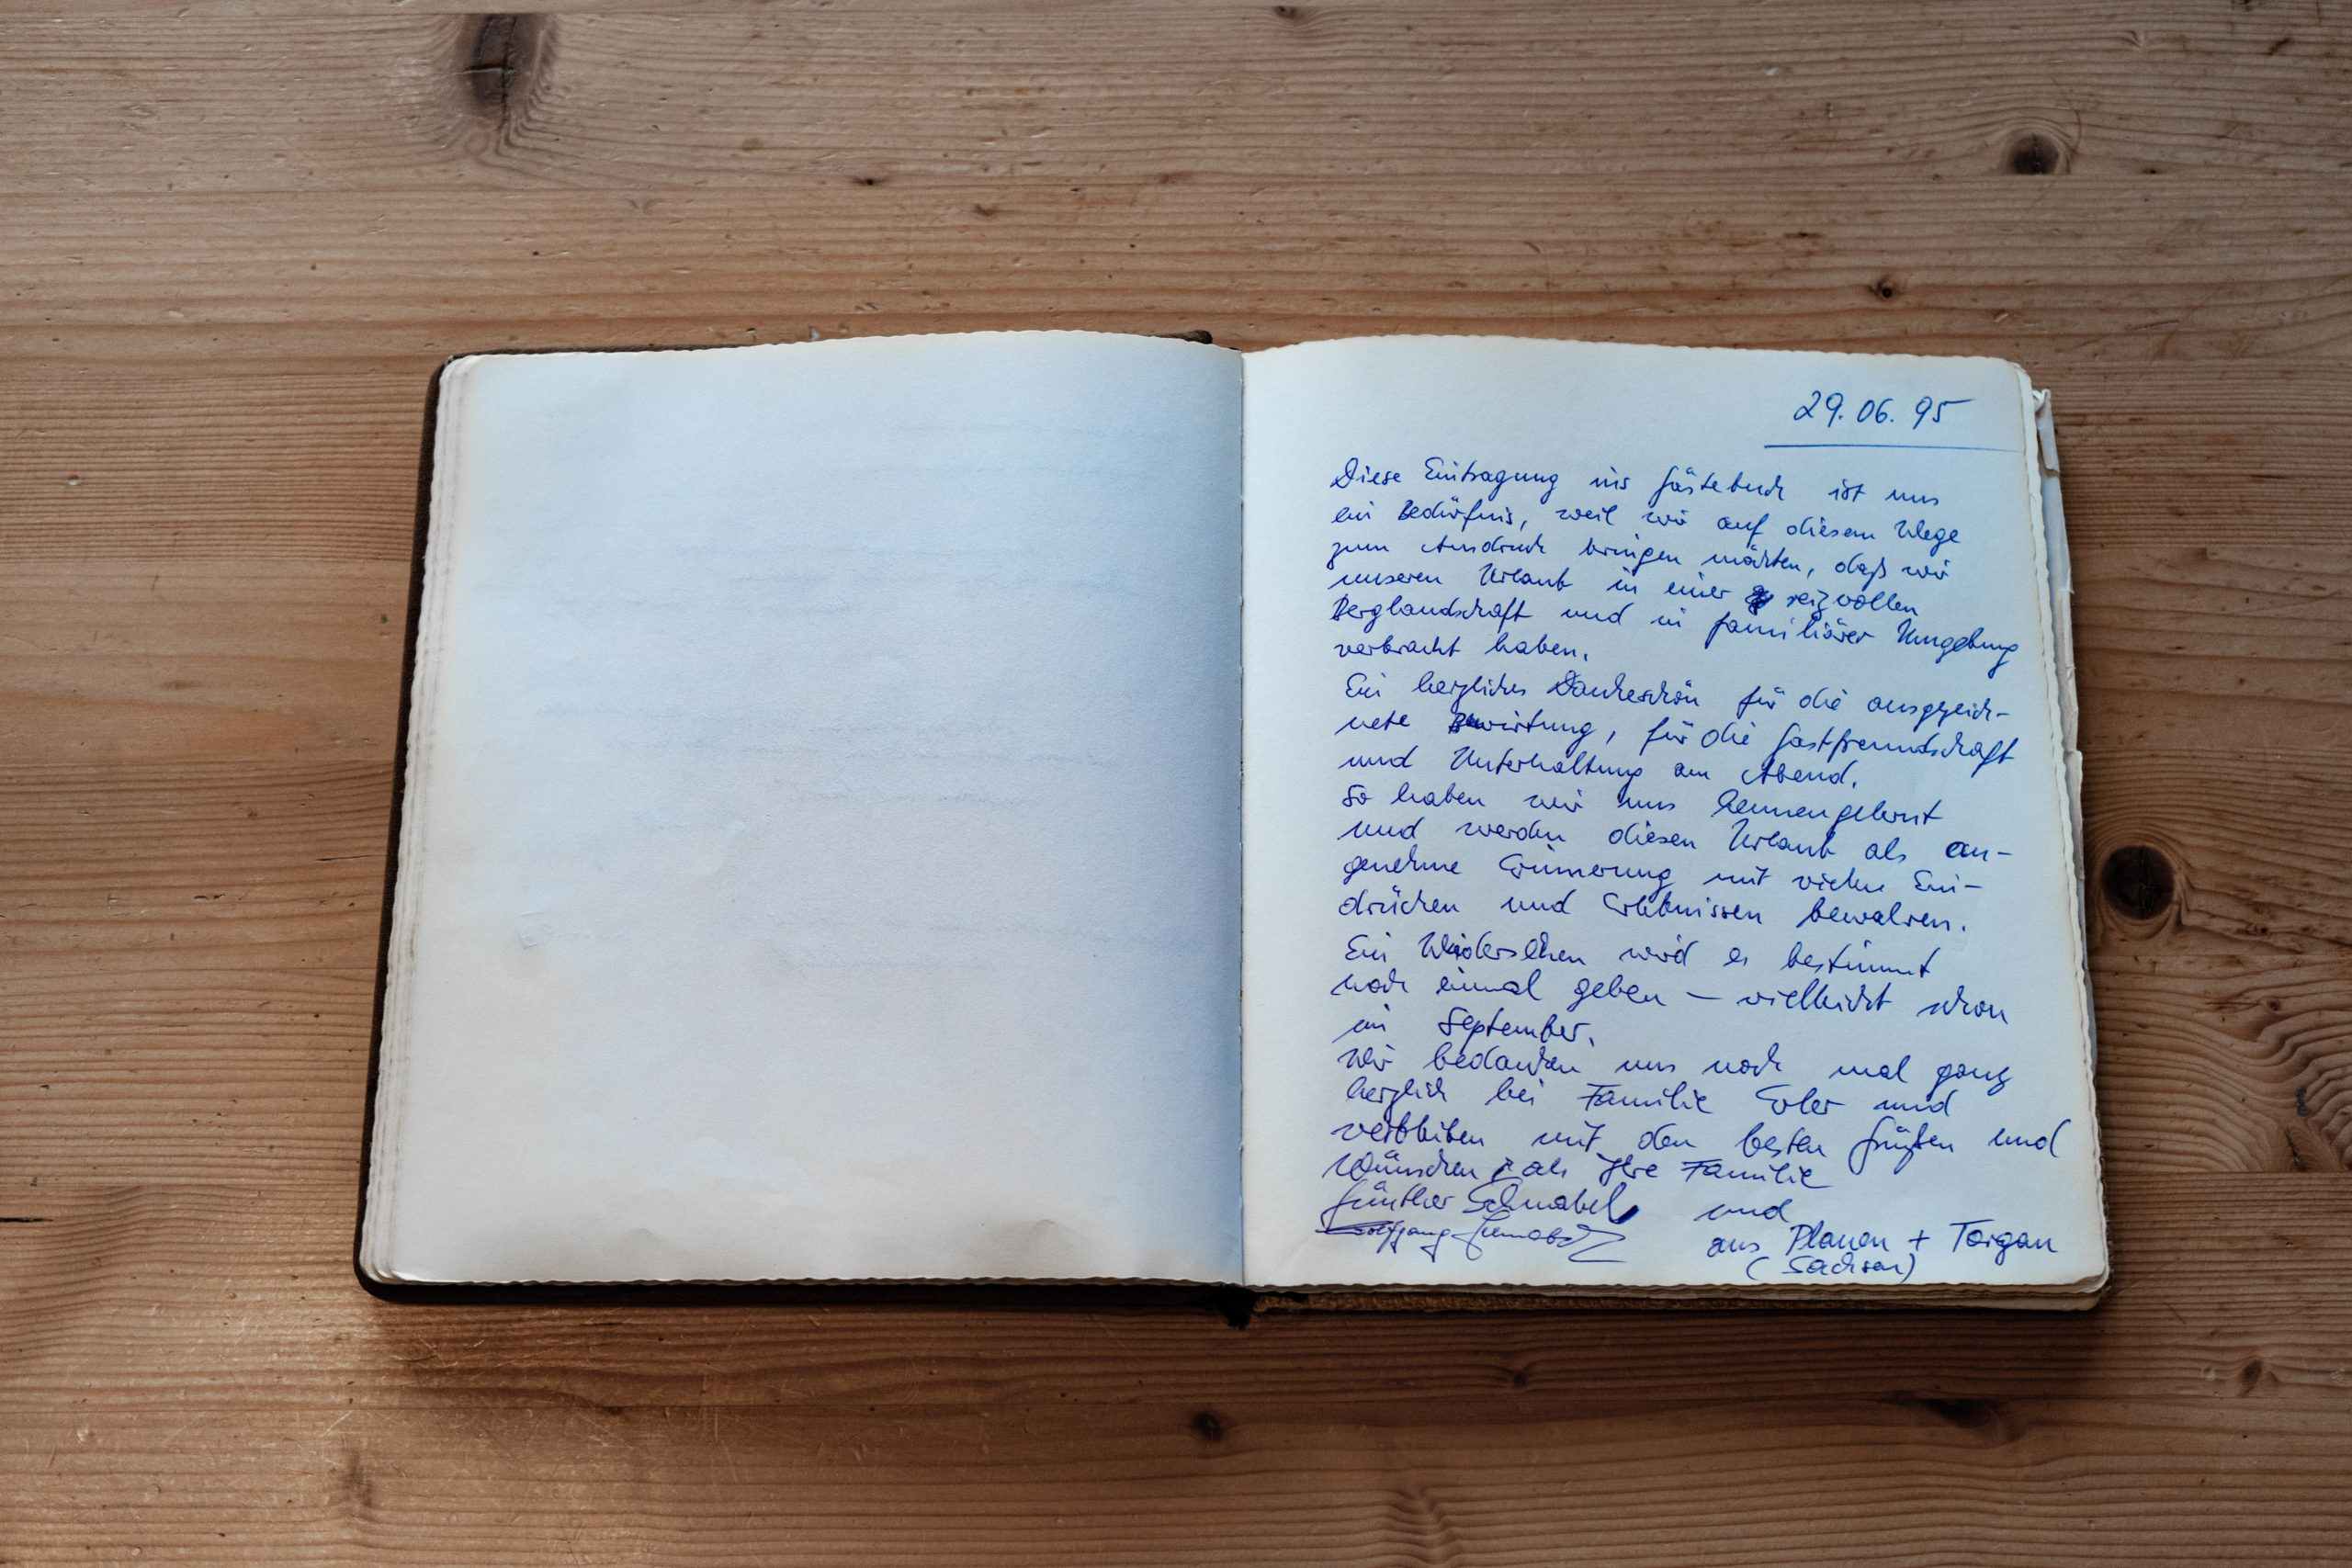 29.06.95
Diese Eintragung ins Gästebuch ist uns
ein Bedürfnis, weil wir auf diesem Wege
zum Ausdruck bringen möchten, daß wir
unseren Urlaub in einer reizvollen
Berglandschaft und in familiärer Umgebung
verbracht haben.
Ein herzliches Dankeschön für die ausgezeich-
nete Bewirtung, für die Gastfreundschaft
und Unterhaltung am Abend.
So haben wir uns kennengelernt
und werden diesen Urlaub als an-
genehme Erinnerung mit vielen Ein-
drücken und Erlebnissen bewahren.
Ein Wiedersehen wird es bestimmt
noch einmal geben – vielleicht schon
im September.
Wir bedanken uns noch mal ganz
herzlich bei Familie Erler und
verbleiben mit den besten Grüßen und
Wünschen als Ihre Familie
Günther Schnabel und
Wolfgang aus Plauen + Torgau
(Sachsen)